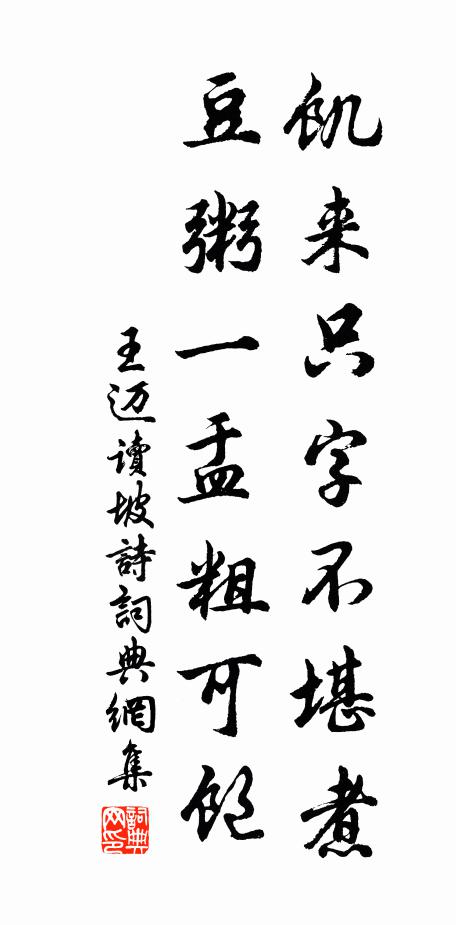 飢来只字不堪煮
豆粥一盂粗可飽
王迈讀坡詩詞典網集
詞典
网印